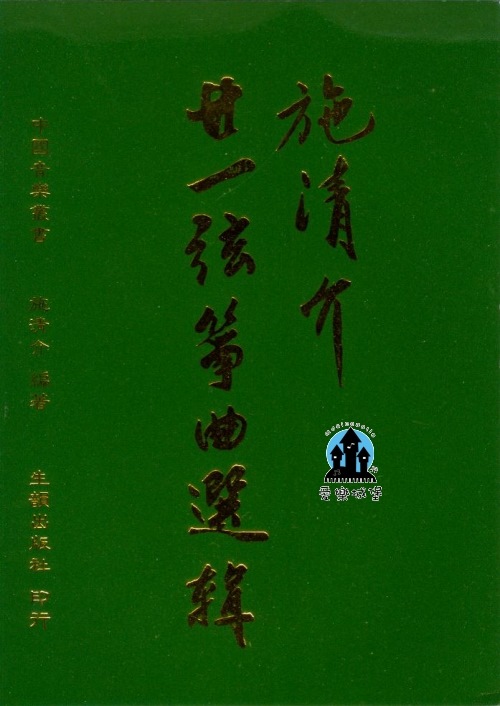 施清介
廿一弦箏曲選輯
中國音樂叢書 施清介 編著 生韻出版社 印行
musicaustle
愛樂城堡